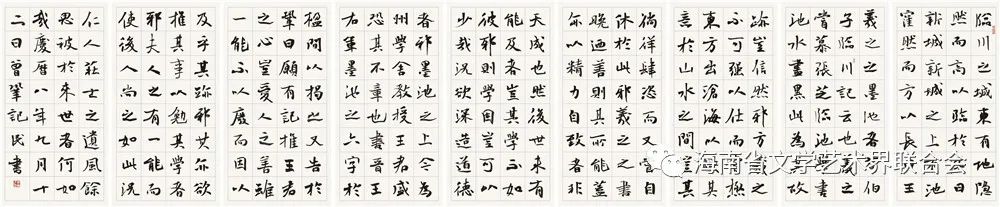 臨川之城東有地隱
然而高以臨於溪曰
新城新城之上有池
窪然而方以長曰王
羲之之墨池者荀伯
子臨川記云也羲之
嘗慕張芝臨池學書
池水盡黑此為其故
跡豈信然邪方羲之
不可強以仕而嘗極
東方出滄海以娛其
意於山水之間豈其
徜徉肆恣而又嘗自
休於此邪羲之之書
晚迺善則其所能蓋
亦以精力自致者非
天成也然後世未有
能及者豈其學不如
彼邪則學固豈可以
少哉況欲深造道德
者邪墨池之上今為
州學舍教授王君盛
恐其不章也書晉王
右軍墨池之六字於
楹間以揭之又告於
鞏曰願有記推王君
之心豈愛人之善雖
一能不以廢而因以
及乎其跡邪其亦欲
推其事以勉其學者
邪夫人之有一能而
使後人尚之如此況
仁人莊士之遺風餘
思被於來世者何如
哉慶曆八年九月十
二日曾鞏記
海南省文学艺术界联合会